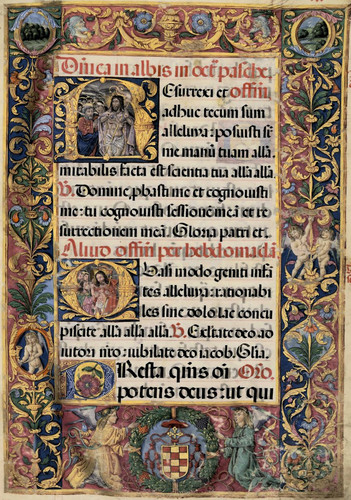 Dñica in albis in oct̃ pasche
Resurrexi et offiũ
adhuc tecum sum
alleluya: posuisti sr̃
me manũ tuam allã.
mirabilis facta est scientia tua allã allã
Domine, pbasti me et cognovisti
me: tu cognovisti sessionẽ meã et re
surrectionem meã. Gloria patri et
Aliud offiũ per hebdomadã.
Quasi modo geniti infã
tes alleluya: rationabi
les sine dolo lac concu
piscite allã allã allã. Exultate deo ad
iutori nr̃o: iubilate deo iacob. Glia.
Presta qm̃s oñi Oro
potens deus: ut qui